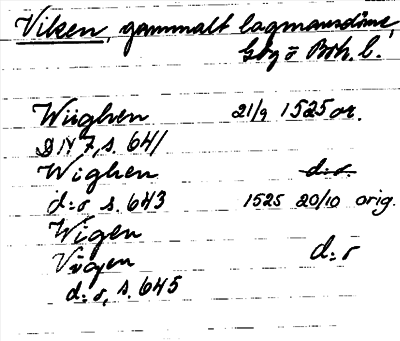 Viken, gammalt lagmansdöme,
Gbg o Boh. l.
Wiighen 21/9 1525 or.
DN 7, s. 641
Wighen d:o
d:o s. 643 1525 20/10 orig.
Wigen
Viigen d:o
d:o, s. 645